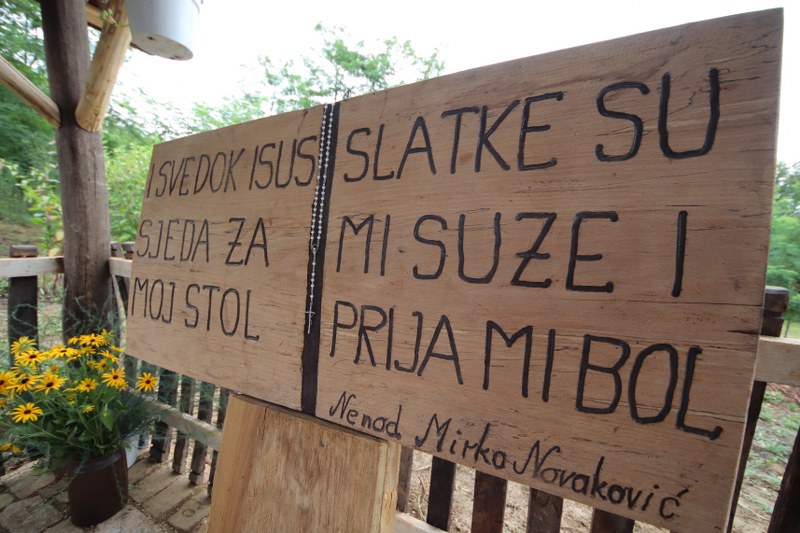 I SVEDOK ISUS
SJEDA ZA
MOJ STOL
SLATKE SU
MI SUZE I
PRIJA MI BOL
Nenad Mirko Novaković